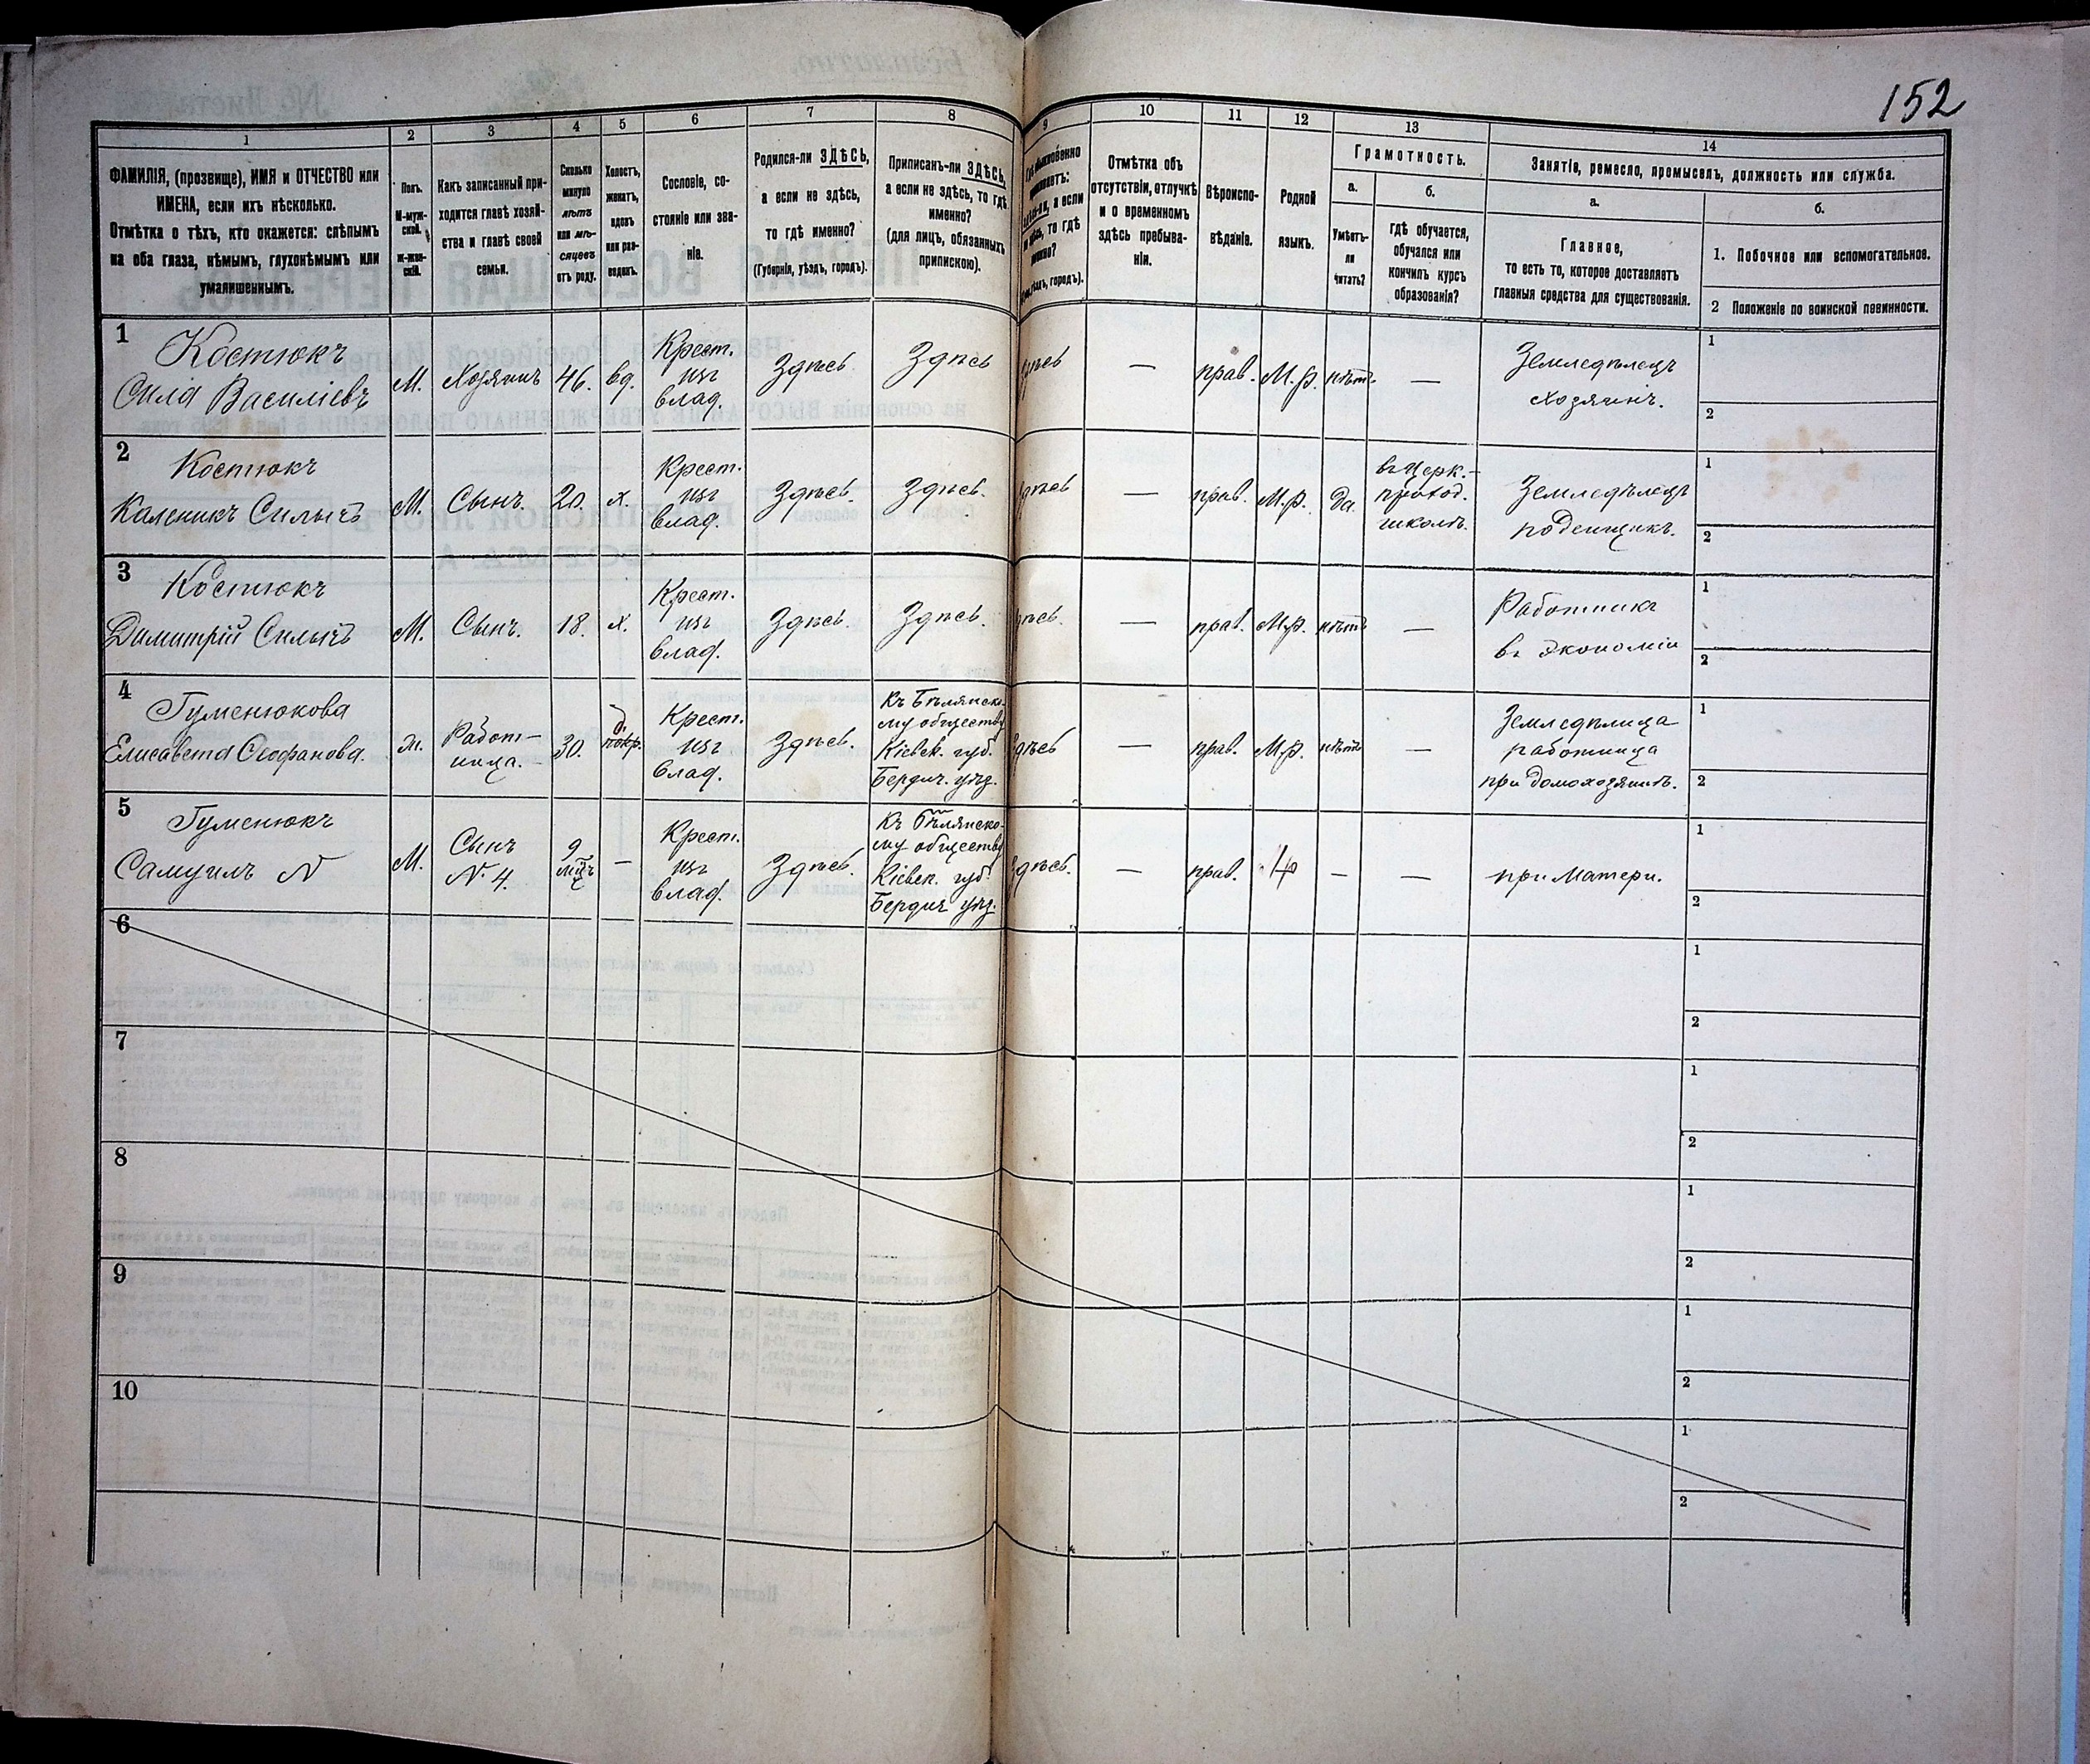 152
1 2 3 4 5 6 7 8 9 10 11 12 13 14
ФАМИЛІЯ, (прозвище), ИМЯ и ОТЧЕСТВО или
ИМЕНА, если ихъ нѣсколько.
Отмѣтка о тѣхъ, кто окажется: слѣпымъ
на оба глаза, нѣмымъ, глухонѣмымъ или
умалишеннымъ.
Полъ.
М-муж-
ской.
ж-жен-
скій.
Какъ записанный при-
ходится главѣ хозяй-
ства и главѣ своей
семьи.
Сколько
минуло
лѣтъ
или мѣ-
сяцевъ
отъ роду.
Холостъ,
женатъ,
вдовъ
или раз-
веденъ.
Сословіе, со-
стояніе или зва-
ніе.
Родился-ли ЗДѢСЬ,
а если не здѣсь,
то гдѣ именно?
(Губернія, уѣздъ, городъ).
Приписанъ-ли ЗДѢСЬ,
а если не здѣсь, то гдѣ
именно?
(для лицъ, обязанныхъ
припискою).
а если
то гдѣ
городъ).
Отмѣтка объ
отсутствіи, отлучкѣ
и о временномъ
здѣсь пребыва-
ніи.
Вѣроиспо-
вѣданіе.
Родной
языкъ.
Грамотность.
а. б.
Умѣетъ-
ли
читать?
гдѣ обучается,
обучался или
кончилъ курсъ
образованія?
Занятіе, ремесло, промыселъ, должность или служба.
а. б.
Главное,
то есть то, которое доставляетъ
главныя средства для существованія.
1. Побочное или вспомогательное.
2 Положеніе по воинской повинности.
1
Костюкъ
Сила Василіевъ
М.
Хозяинъ
46.
вд.
Крест.
изъ
влад.
Здѣсь
Здѣсь
Здѣсь
—
прав.
М.р.
нѣтъ
—
Земледѣлецъ
хозяинъ.
1
2
2
Костюкъ
Каленикъ Силычъ
М.
Сынъ.
20.
х.
Крест.
изъ
влад.
Здѣсь.
Здѣсь.
Здѣсь
—
прав.
М.р.
да
въ Церк.-
приход.
школѣ.
Земледѣлецъ
поденщикъ.
1
2
3
Костюкъ
Димитрій Силычъ
М.
Сынъ.
18.
х.
Крест.
изъ
влад.
Здѣсь.
Здѣсь.
Здѣсь.
—
прав.
М.р.
нѣтъ
—
Работникъ
въ экономіи
1
2
4
Гуменюкова
Елисавета Ѳеофанова.
ж.
Работ-
ница.
30.
покр.
Крест.
изъ
влад.
Здѣсь.
Къ Бѣлянско-
му обществу
Кіевск. губ.
Бердич. уѣз.
Здѣсь
—
прав.
М.р.
нѣтъ
—
Земледѣлица
работница
при домохозяинѣ.
1
2
5
Гуменюкъ
Самуилъ N
М.
Сынъ
N 4.
9
мцъ
—
Крест.
изъ
влад.
Здѣсь.
Къ Бѣлянско-
му обществу
Кіевск. губ.
Бердич уѣз.
Здѣсь.
—
прав.
—
—
при Матери.
1
2
6
1
2
7
1
2
8
1
2
9
1
2
10
1
2